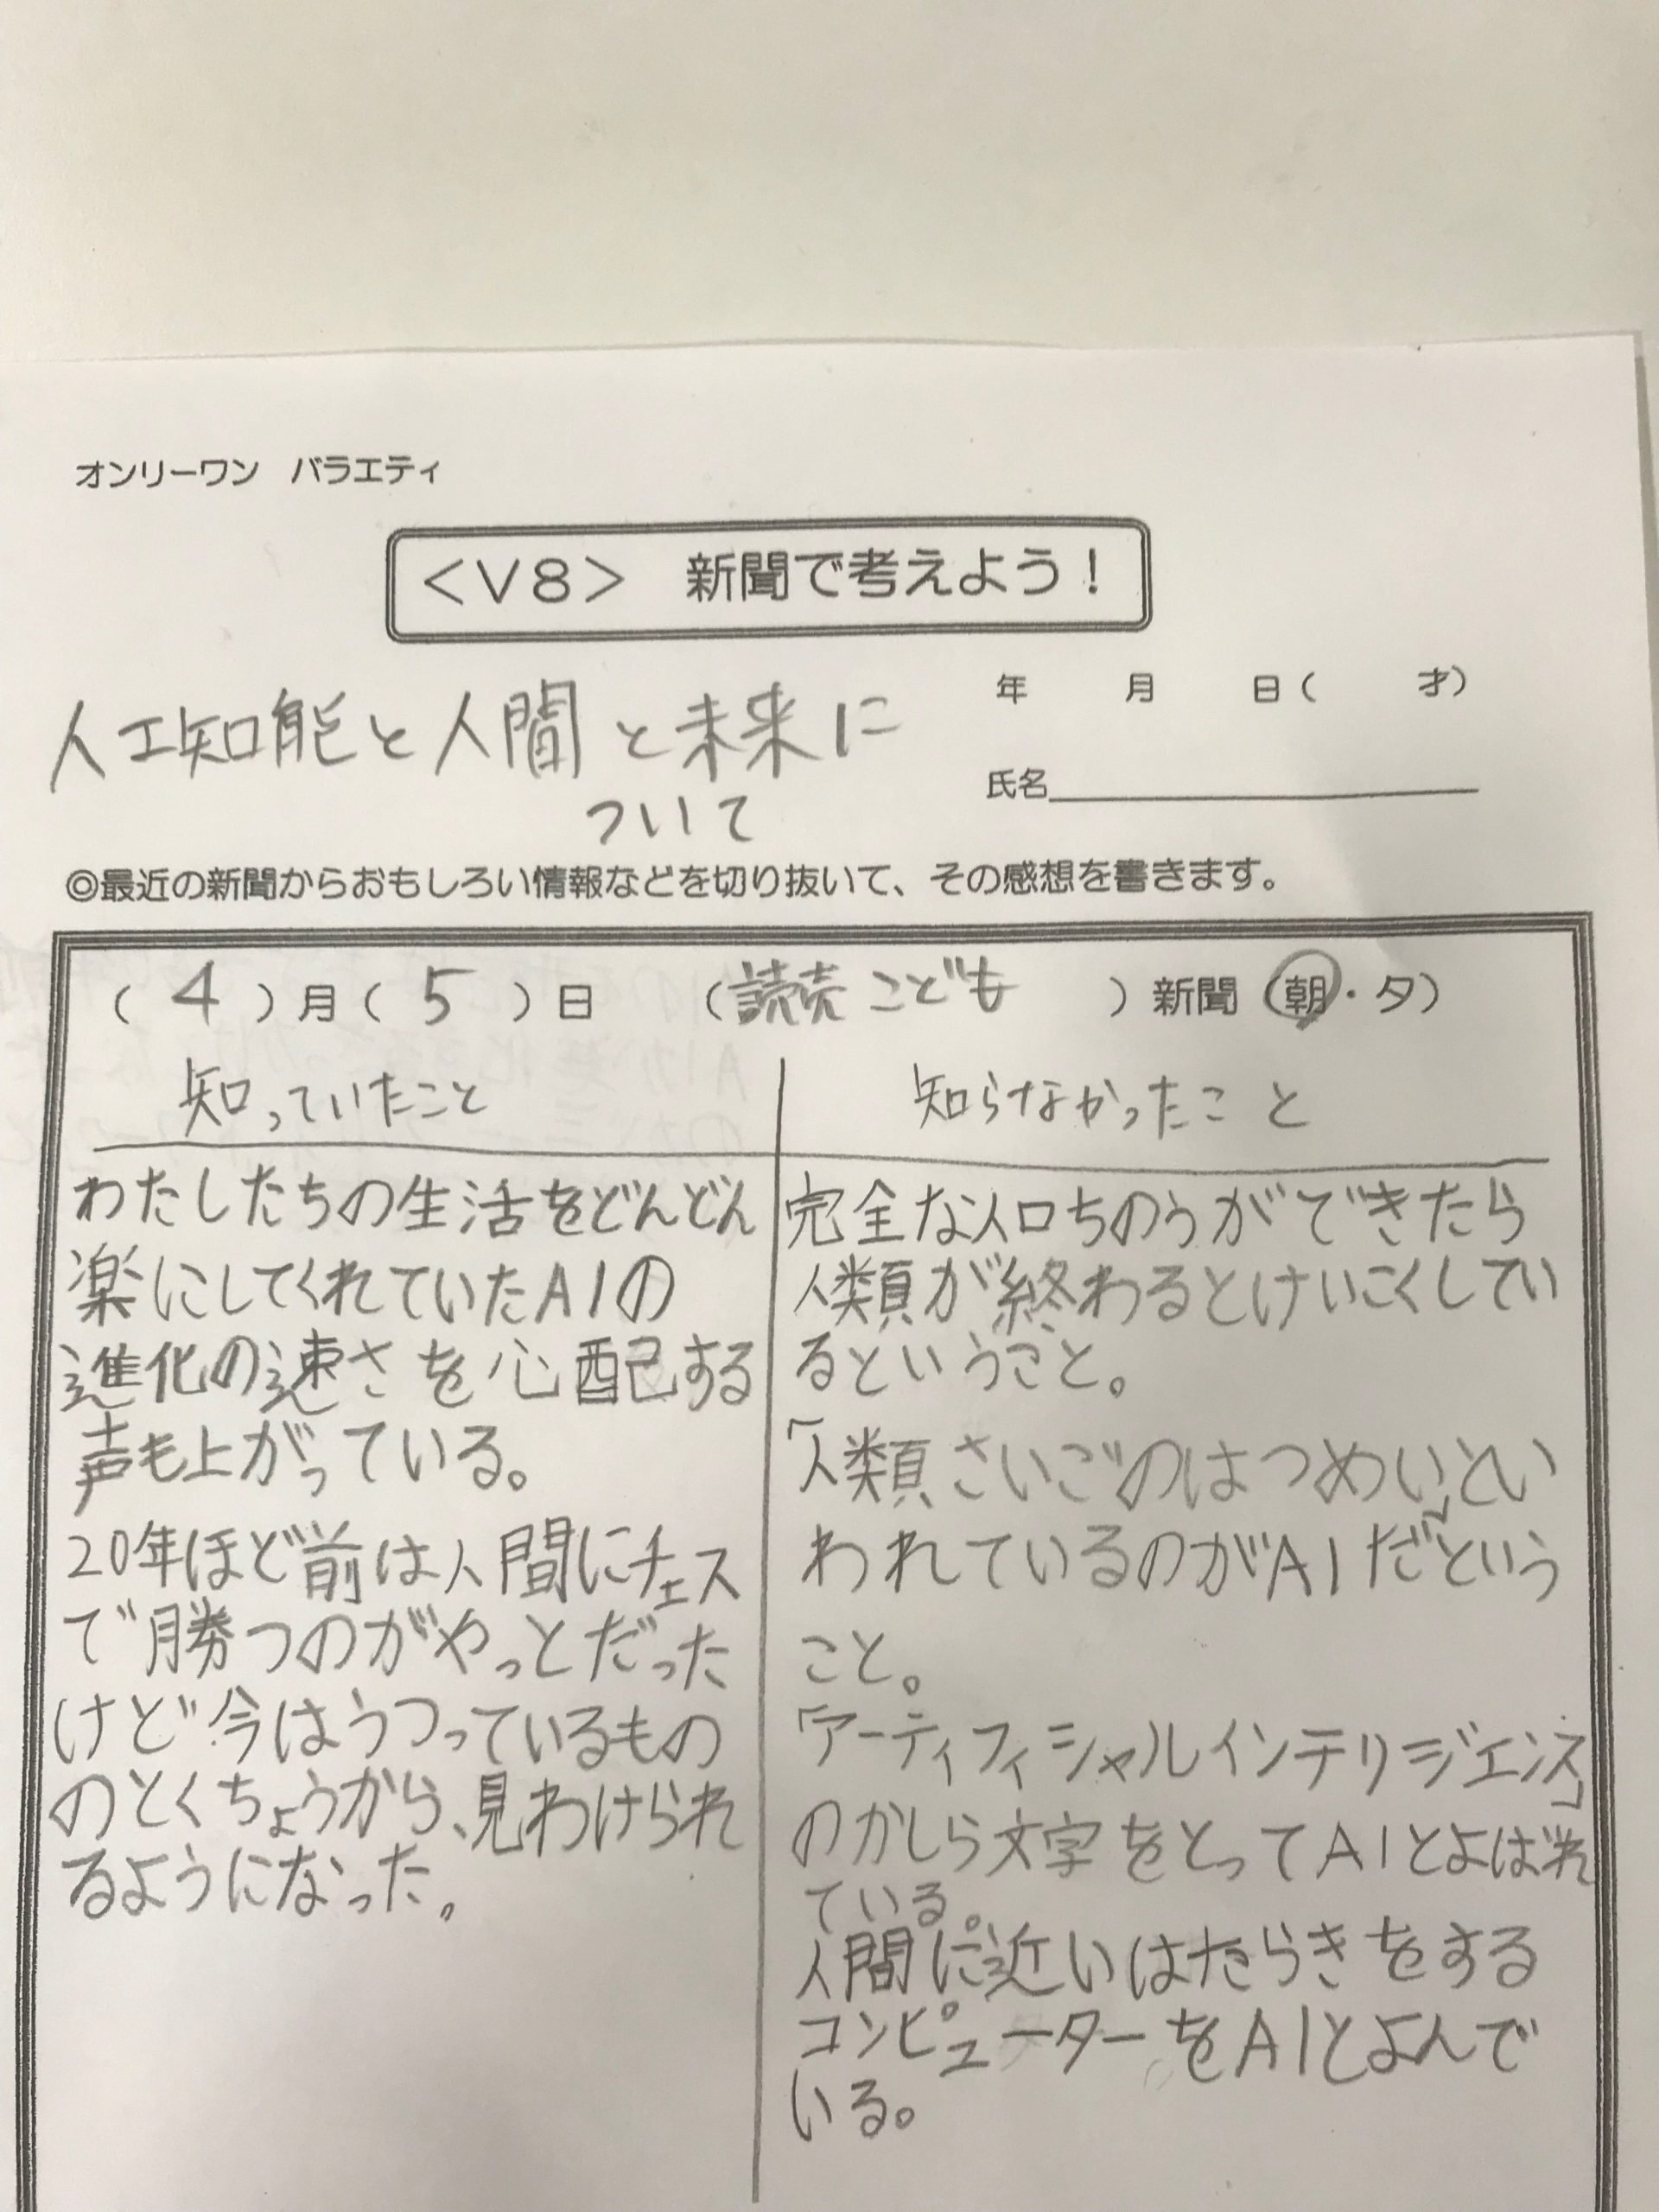 オンリーワン バラエティ
＜V8＞ 新聞で考えよう！
年 月 日（ 才）
人工知能と人間と未来に
ついて
氏名
◎最近の新聞からおもしろい情報などを切り抜いて、その感想を書きます。
（4）月（5）日 （読売こども）新聞（朝・夕）
知っていたこと
わたしたちの生活をどんどん
楽にしてくれていたAIの
進化の速さを心配する
声も上がっている。
20年ほど前は人間にチェス
で勝つのがやっとだった
けど今はうつっているもの
のとくちょうから、見わけられ
るようになった。
知らなかったこと
完全な人口ちのうができたら
人類が終わるとけいこくしてい
るということ。
「人類さいごのはつめい」とい
われているのがAIだという
こと。
「アーティフィシャルインテリジエンス」
のかしら文字をとってAIとよばれ
ている。
人間に近いはたらきをする
コンピューターをAIとよんで
いる。